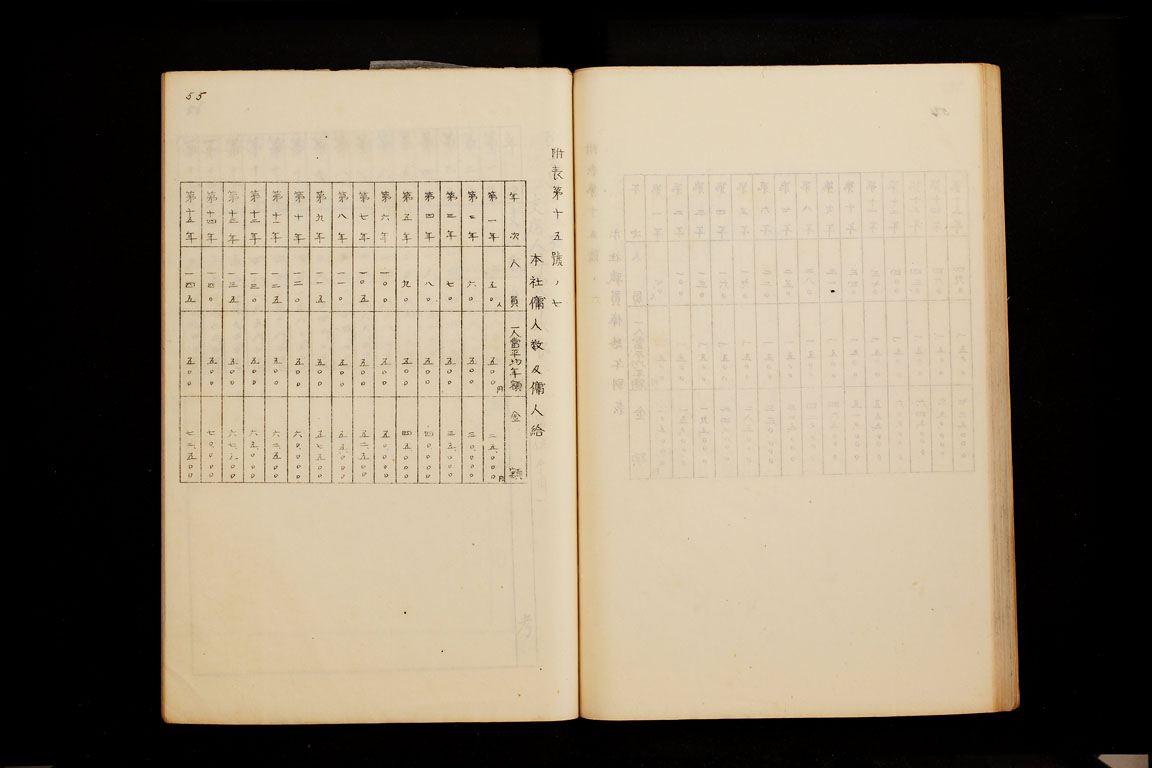 55
附表第十五號ノ七
本社傭人数及傭人給
年次 人員 一人當平均年額 金額
第一年 五〇人 五〇〇円 二五、〇〇〇円
第二年 六〇 五〇〇 三〇、〇〇〇
第三年 七〇 五〇〇 三五、〇〇〇
第四年 八〇 五〇〇 四〇、〇〇〇
第五年 九〇 五〇〇 四五、〇〇〇
第六年 一〇〇 五〇〇 五〇、〇〇〇
第七年 一〇五 五〇〇 五二、五〇〇
第八年 一一〇 五〇〇 五五、〇〇〇
第九年 一一五 五〇〇 五七、五〇〇
第十年 一二〇 五〇〇 六〇、〇〇〇
第十一年 一二五 五〇〇 六二、五〇〇
第十二年 一三〇 五〇〇 六五、〇〇〇
第十三年 一三五 五〇〇 六七、五〇〇
第十四年 一四〇 五〇〇 七〇、〇〇〇
第十五年 一四五 五〇〇 七二、五〇〇